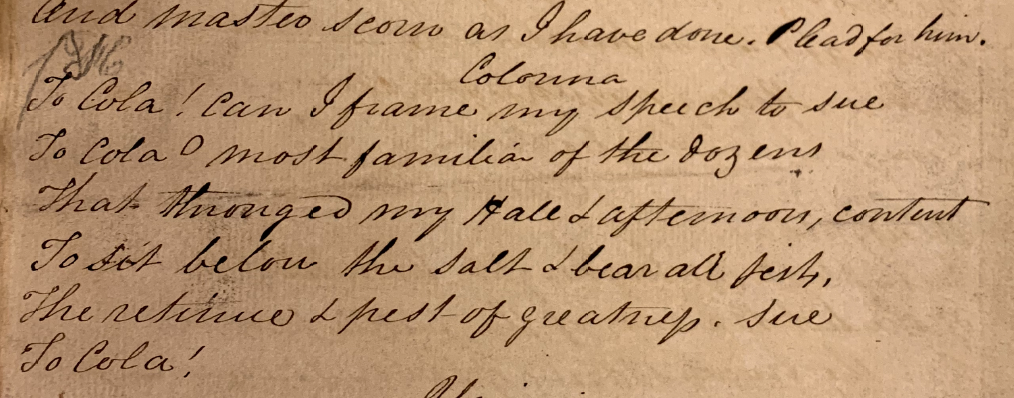 And master scorn as I have done. Plead for him.
Colonna
To Cola! can I frame my speech to sue
To Cola O most familiar of the dozens
That thronged my Hall & afternoons, content
To sit below the salt & bear all jests,
The retinue & pest of greatness. Sue
To Cola!